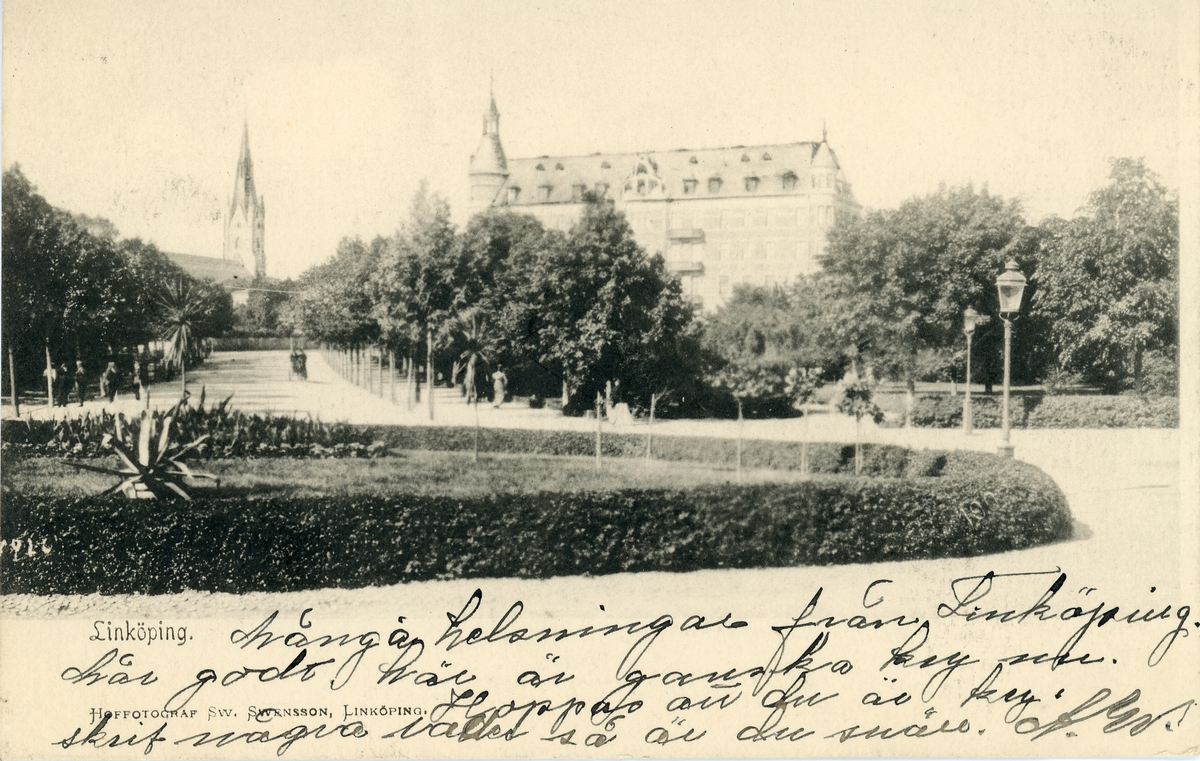 Linköping. Många helsningar från Linköping.
Mår godt, här är ganska kry nu.
Hoppas att du är kry.
Hoffotograf Sw. Swensson, Linköping.
skrif några rader så är du snäll. A. W.